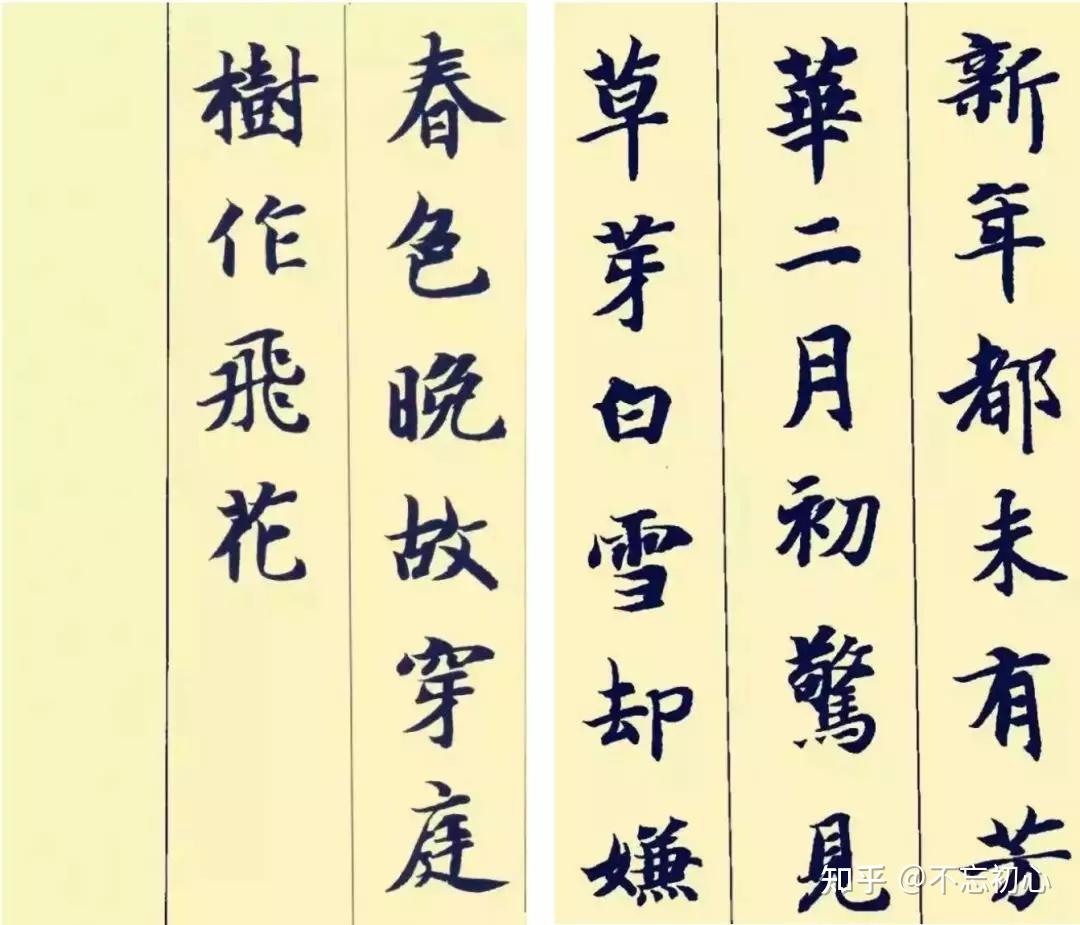 新年都未有芳
華二月初驚見
草芽白雪却嫌
春色晚故穿庭
樹作飛花
知乎 @不忘初心